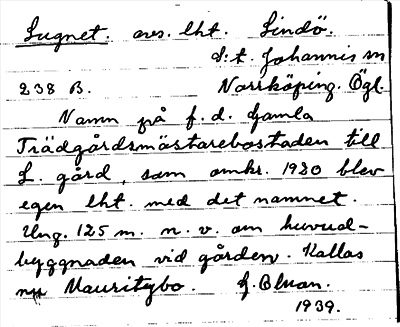 Lugnet. avs. lht. Lindö.
S:t. Johannis sn
238 B. Norrköping. Ögl.
Namn på f. d. Gamla
Trädgårdsmästarebostaden till
L. gård, som omkr. 1920 blev
egen lht. med det namnet.
Ung. 125 m. n. v. om huvud-
byggnaden vid gården. Kallas
nu Mauritzbo.
1939.